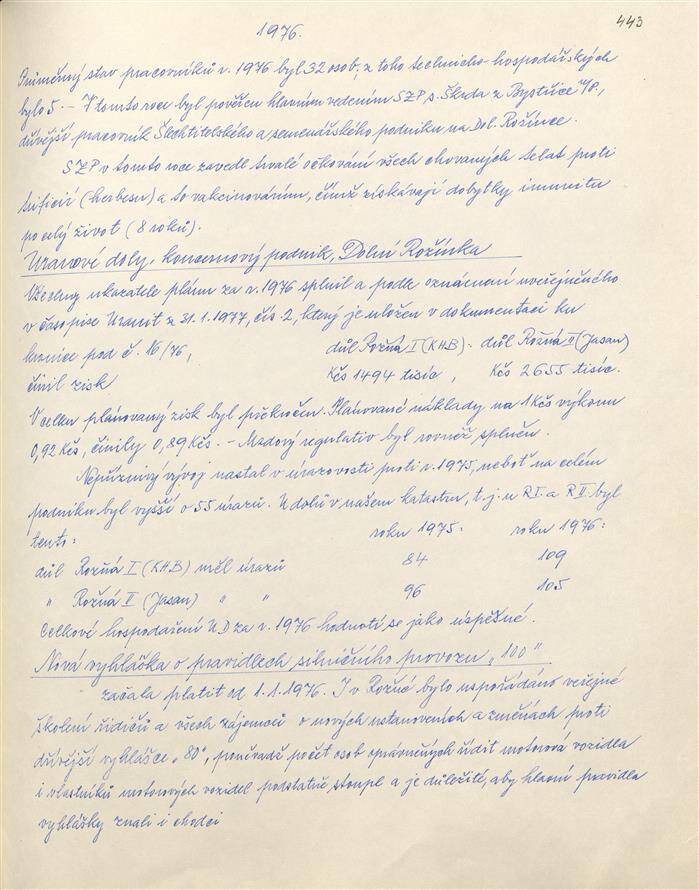 443
1976.
Průměrný stav pracovníků v r. 1976 byl 32 osob, z toho technicko-hospodářských
bylo 5. - V tomto roce byl pověřen hlavním vedením SZP s. Škoda z Bystřice n/P.,
dřívější pracovník Šlechtitelského a semenářského podniku na Dol. Rožínce.
SZP v tomto roce zavedl trvalé očkování všech chovaných telat proti
(herbesu) a to vakcinováním, čímž získávají dobytky imunitu
po celý život (8 roků).
Uranové doly, koncernový podnik, Dolní Rožínka
Všechny ukazatele plánu za r. 1976 splnil a podle oznámení uveřejněného
v časopise Uranit z 31.1.1977, čís. 2, který je uložen v dokumentaci ku
kronice pod č. 16/76,
důl Rožná I (KHB) - důl Rožná II (Jasan)
činil zisk
Kčs 1494 tisíc, Kčs 2655 tisíc.
V celku plánovaný zisk byl překročen. Plánované náklady na 1 Kčs výkonu
0,92 Kčs, činily 0,89 Kčs. - Mzdový regulativ byl rovněž splněn.
Nepříznivý vývoj nastal v úrazovosti proti r. 1975, neboť na celém
podniku byl vyšší o 55 úrazů. U dolů v našem katastru, t.j. u R I. a R II. byl
tento:
roku 1975: roku 1976:
důl Rožná I (KHB) měl úrazů 84 109
" Rožná II (Jasan) " " 96 105
Celkové hospodaření UD za r. 1976 hodnotí se jako úspěšné.
Nová vyhláška o pravidlech silničního provozu "100"
začala platit od 1.1.1976. I v Rožné bylo uspořádáno veřejné
školení řidičů a všech zájemců o nových ustanoveních a změnách proti
dřívější vyhlášce "80", poněvadž počet osob oprávněných řídit motorová vozidla
i vlastníků motorových vozidel podstatně stoupl a je důležité, aby hlavní pravidla
vyhlášky znali i chodci